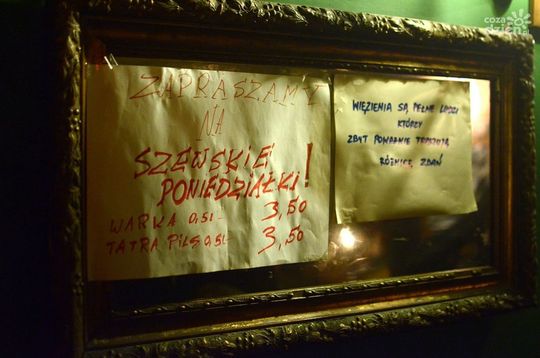 ZAPRASZAMY
NA
SZEWSKIE
PONIEDZIAŁKI!
WARKA 0,5L- 3,50
TATRA PILS 0,5L- 3,50
WIĘZIENIA SĄ PEŁNE LUDZI
KTÓRZY
ZBYT POWAŻNIE TRAKTUJĄ
RÓŻNICĘ ZDAŃ
coza
dzień